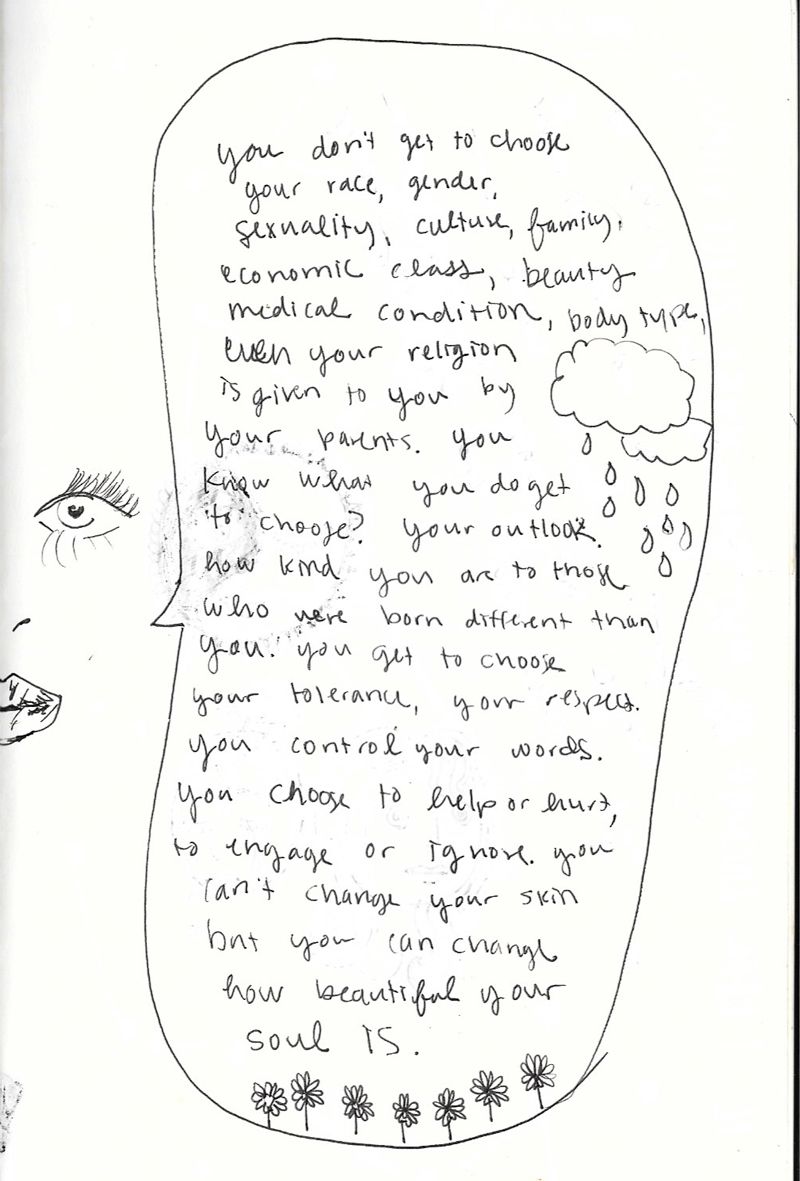 you don't get to choose
your race, gender,
sexuality, culture, family,
economic class, beauty
medical condition, body type,
even your religion
is given to you by
your parents. you
know what you do get
to choose? your outlook.
how kind you are to those
who were born different than
you. you get to choose
your tolerance, your respect.
you control your words.
you choose to help or hurt,
to engage or ignore. you
can't change your skin
but you can change
how beautiful your
soul is.